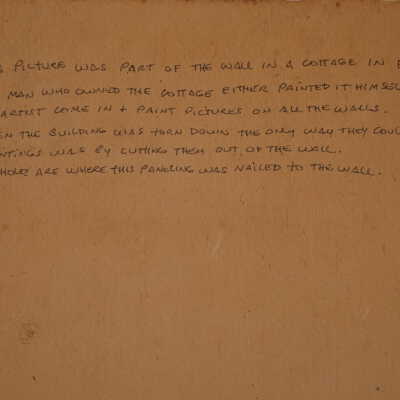 PICTURE WAS PART OF THE WALL IN A COTTAGE IN
MAN WHO OWNED THE COTTAGE EITHER PAINTED IT HIMSEL
ARTIST COME IN + PAINT PICTURES ON ALL THE WALLS.
EN THE BUILDING WAS TORN DOWN THE ONLY WAY THEY COUL
NTINGS WAS BY CUTTING THEM OUT OF THE WALL.
HOLES ARE WHERE THIS PANELING WAS NAILED TO THE WALL.